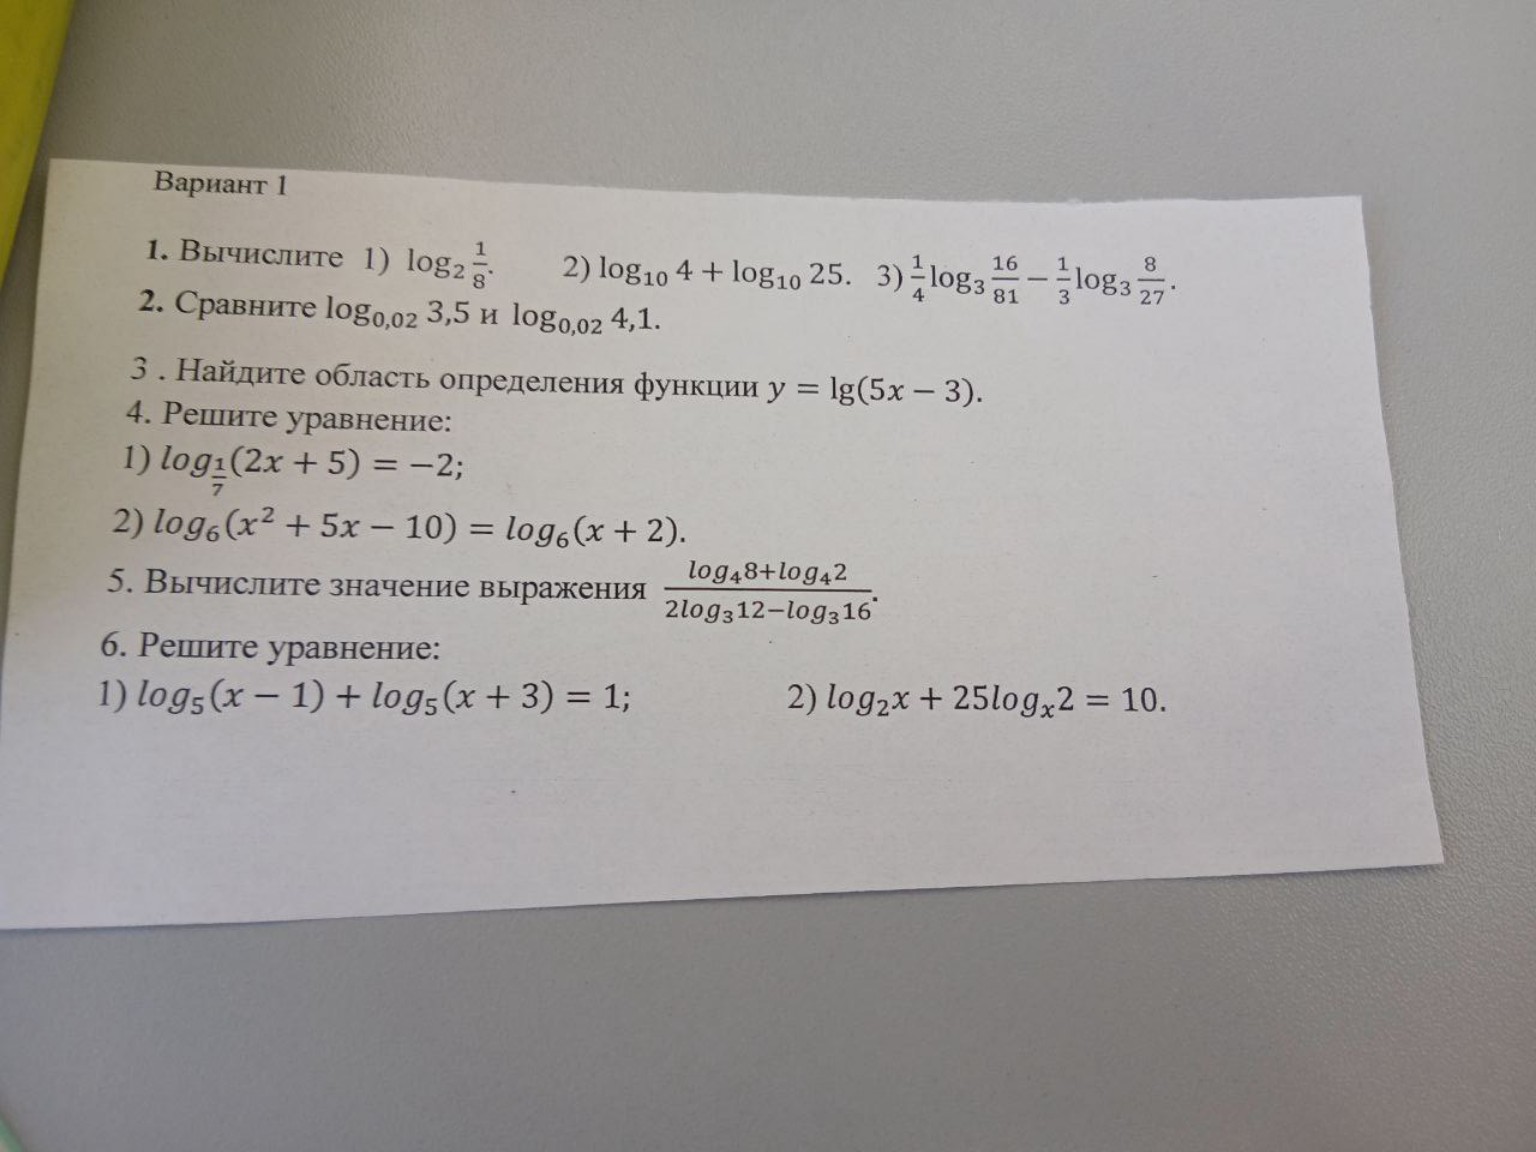 Вариант 1
1. Вычислите 1) log₂ 1/8. 2) log₁₀ 4 + log₁₀ 25. 3) 1/4 log₃ 16/81 − 1/3 log₃ 8/27.
2. Сравните log₀,₀₂ 3,5 и log₀,₀₂ 4,1.
3 . Найдите область определения функции y = lg(5x − 3).
4. Решите уравнение:
1) log_{1/7}(2x + 5) = −2;
2) log₆(x² + 5x − 10) = log₆(x + 2).
5. Вычислите значение выражения (log₄8+log₄2)/(2log₃12−log₃16).
6. Решите уравнение:
1) log₅(x − 1) + log₅(x + 3) = 1; 2) log₂x + 25logₓ2 = 10.